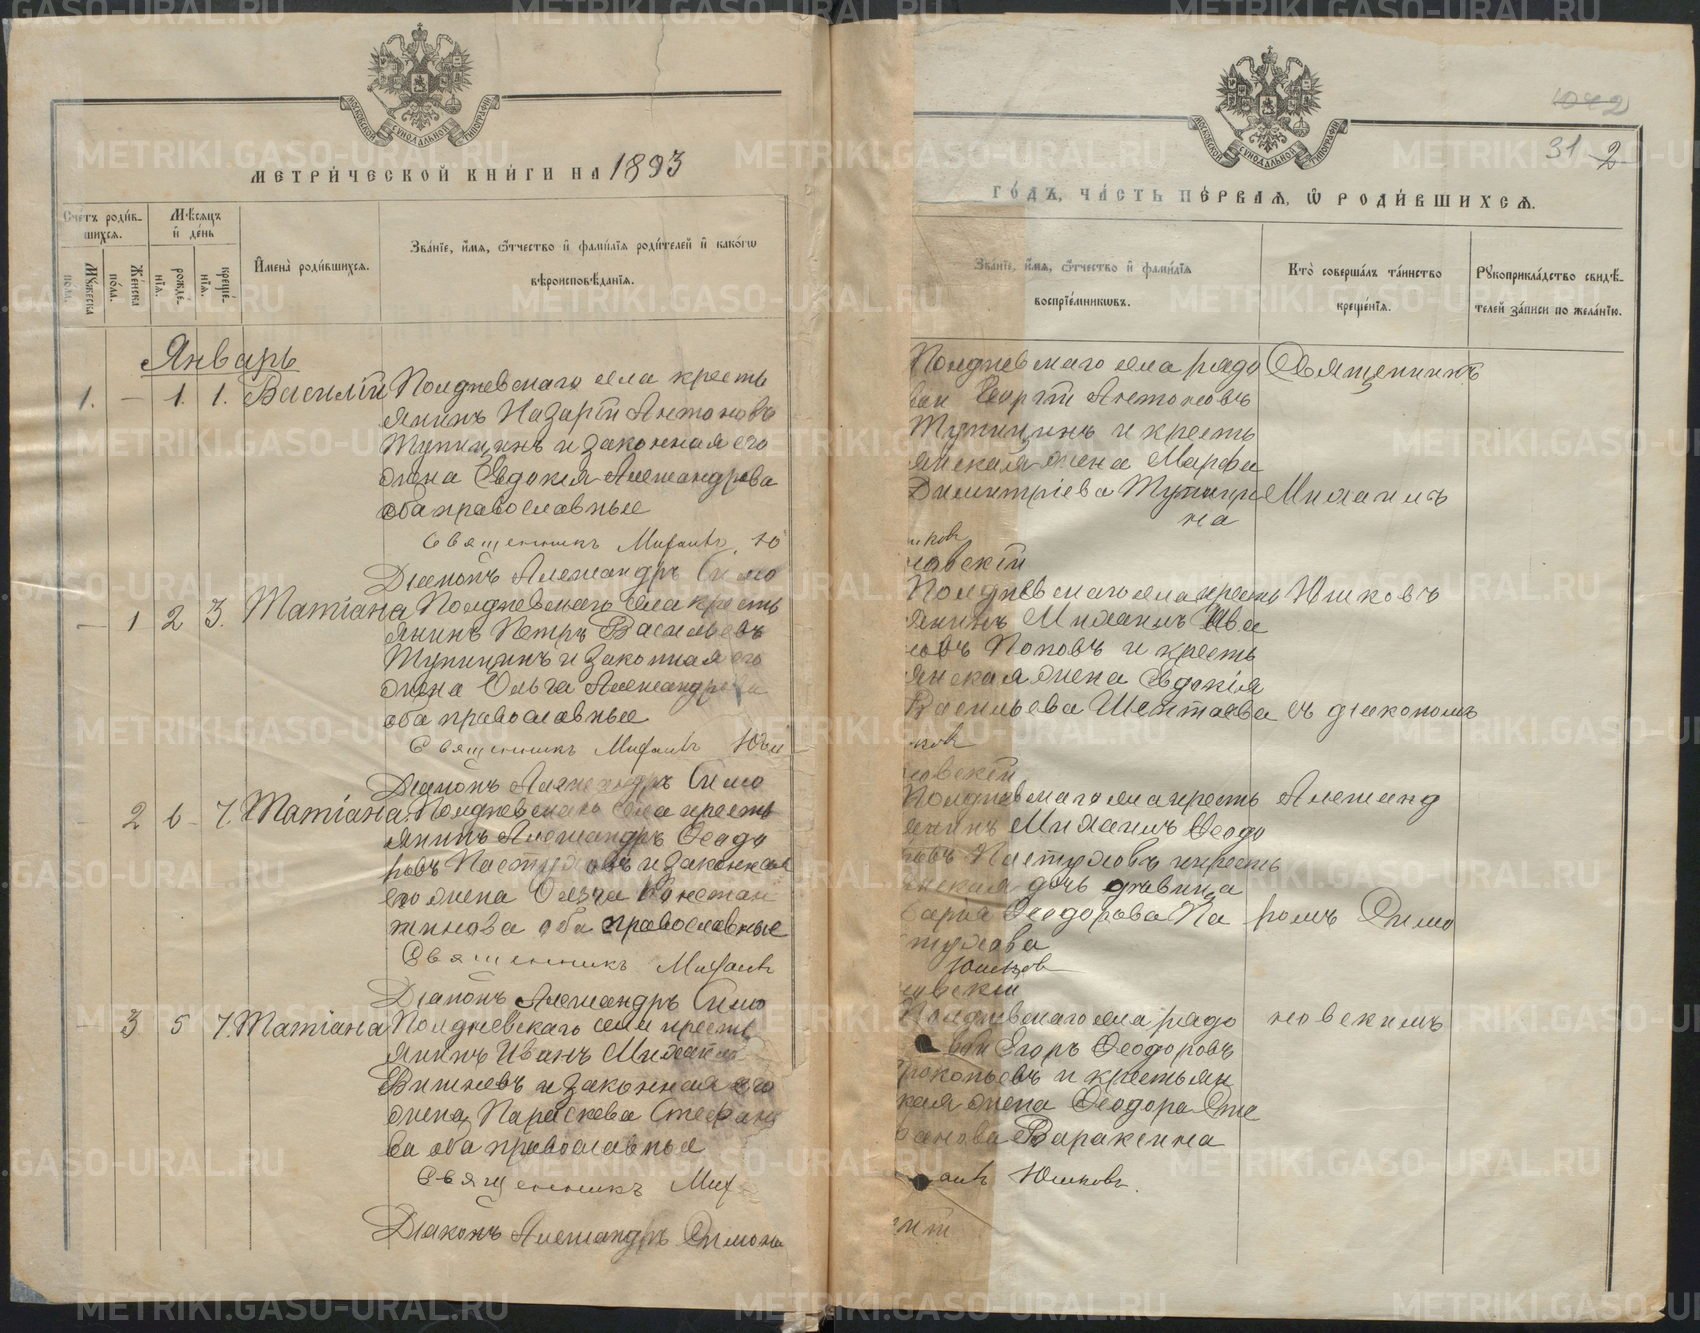 МЕТРИ́ЧЕСКОЙ КНИ́ГИ НА 1893
Сче́тъ роди́в-
шихсѧ.
Мѣ́сѧцъ
и҆ де́нь
Мꙋ́жеска
по́ла.
Же́нска
по́ла.
рожде́-
нїѧ.
креще́-
нїѧ.
И҆мена̀ роди́вшихсѧ.
Зва́нїе, и҆́мѧ, ѻ҆́тчество и҆ фами́лїѧ роди́телей и҆ како́гѡ
вѣроисповѣ́данїѧ.
Январь
1. — 1. 1. Василій Полдневскаго села кресть
янинъ Назарій Антоновъ
Тупицинъ и законная его
жена Евдокія Александрова
оба православные
Священникъ Михаилъ Ю
Діаконъ Александръ Симо
— 1 2 3. Татіана Полдневскаго села кресть
янинъ Петръ Васильевъ
Тупицинъ и законная его
жена Ольга Александрова
оба православные
Священникъ Михаилъ Юш
Діаконъ Александръ Симо
2 6 7. Татіана Полдневскаго села кресть
янинъ Александръ Ѳеодо
ровъ Пастуховъ и законная
его жена Констан
тинова оба православные
Священникъ Михаилъ
Діаконъ Александръ Симо
3 5 7. Татіана Полдневскаго села кресть
янинъ Иванъ
и законная его
жена Параскева Стефано
ва оба православные
Священникъ Мих
Діаконъ Александръ Симоно
31 2
ГО́ДЪ, ЧА́СТЬ ПЕ́РВАѦ, Ѡ҆ РОДИ́ВШИХСѦ.
Зва́нїе, и҆́мѧ, ѻ҆́тчество и҆ фами́лїѧ
воспрїе́мникѡвъ.
Кто̀ соверша́лъ та́инство
креще́нїѧ.
Рꙋкоприкла́дство свидѣ́-
телей за́писи по жела́нїю.
Полдневскаго села рядо Священникъ
вой Георгій Антоновъ
Тупицинъ и кресть
янская жена Марфа
Димитріева Тупици Михаилъ
на
шковъ
новскій
Полдневскаго села кресть Юшковъ
янинъ Михаилъ Ива
новъ Поповъ и кресть
янская жена Евдокія
Васильева съ діакономъ
ковъ
новскій
Полдневскаго села кресть Александ
янинъ Михаилъ Ѳеодо
ровъ Пастуховъ и кресть
янская дочь дѣвица
Марія Ѳеодорова Па ромъ Симо
стухова
Юшков
новскій
Полдневскаго села рядо новскимъ
вой Егоръ Ѳеодоровъ
Прокопьевъ и крестьян
ская жена Ѳеодора Сте
фанова Варакина
аилъ Юшковъ.